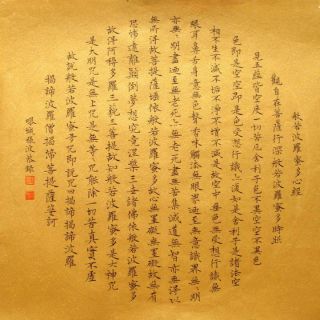 般若波羅蜜多心經
觀自在菩薩行深般若波羅蜜多時照
見五蘊皆空度一切苦厄舍利子色不異空空不異色
色即是空空即是色受想行識亦復如是舍利子是諸法空
相不生不滅不垢不淨不增不減是故空中無色無受想行識無
眼耳鼻舌身意無色聲香味觸法無眼界迺至無意識界無無明
亦無無明盡迺至無老死亦無老死盡無苦集滅道無智亦無得以
無所得故菩提薩埵依般若波羅蜜多故心無罣礙無罣礙故無有
恐怖遠離顛倒夢想究竟涅槃三世諸佛依般若波羅蜜多
故得阿耨多羅三藐三菩提故知般若波羅蜜多是大神咒
是大明咒是無上咒是無等等咒能除一切苦真實不虛
故說般若波羅蜜多咒即說咒曰揭諦揭諦波羅
揭諦波羅僧揭諦菩提薩婆訶
恭錄